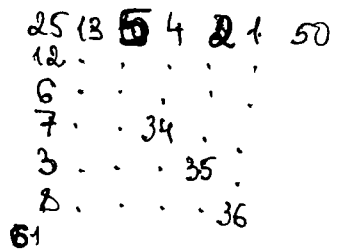 25 13 5 4 2 1 50
12 . . . . .
6 . . . . .
7 . . 34 . .
3 . . . 35 .
8 . . . . 36
61